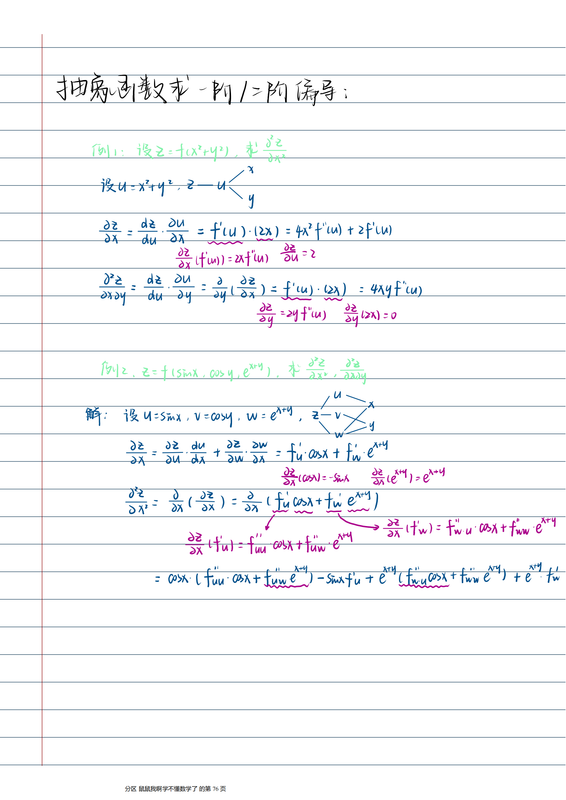 抽象函数求一阶/二阶偏导:
例1: 设 z=f(x²+y²), 求 ∂²z/∂x²
设 u=x²+y², z — u x y
∂z/∂x = dz/du · ∂u/∂x = f'(u)·(2x) = 4x²f''(u) + 2f'(u)
∂z/∂x (f'(u)) = 2xf''(u) ∂z/∂u = 2
∂²z/∂x∂y = dz/du · ∂u/∂y = ∂/∂y (∂z/∂x) = f'(u)·(2x) = 4xyf''(u)
∂z/∂y = 2yf''(u) ∂z/∂y (2x) = 0
例2, z=f(sinx, cosy, e^(x+y)), 求 ∂²z/∂x², ∂²z/∂x∂y
解: 设 u=sinx, v=cosy, w=e^(x+y), z u v w x y
∂z/∂x = ∂z/∂u · du/dx + ∂z/∂w · ∂w/∂x = f'u·cosx + f'w·e^(x+y)
∂z/∂x (cosx) = -sinx ∂z/∂x (e^(x+y)) = e^(x+y)
∂²z/∂x² = ∂/∂x (∂z/∂x) = ∂/∂x (f'u cosx + f'w e^(x+y))
∂z/∂x (f'u) = f''uu cosx + f''uw·e^(x+y) ∂z/∂x (f'w) = f''wu·cosx + f''ww·e^(x+y)
= cosx·(f''uu·cosx + f''uw e^(x+y)) - sinx f'u + e^(x+y) (f''wu cosx + f''ww e^(x+y)) + e^(x+y)·f'w
分区 鼠鼠我啊学不懂数学了 的第 76 页